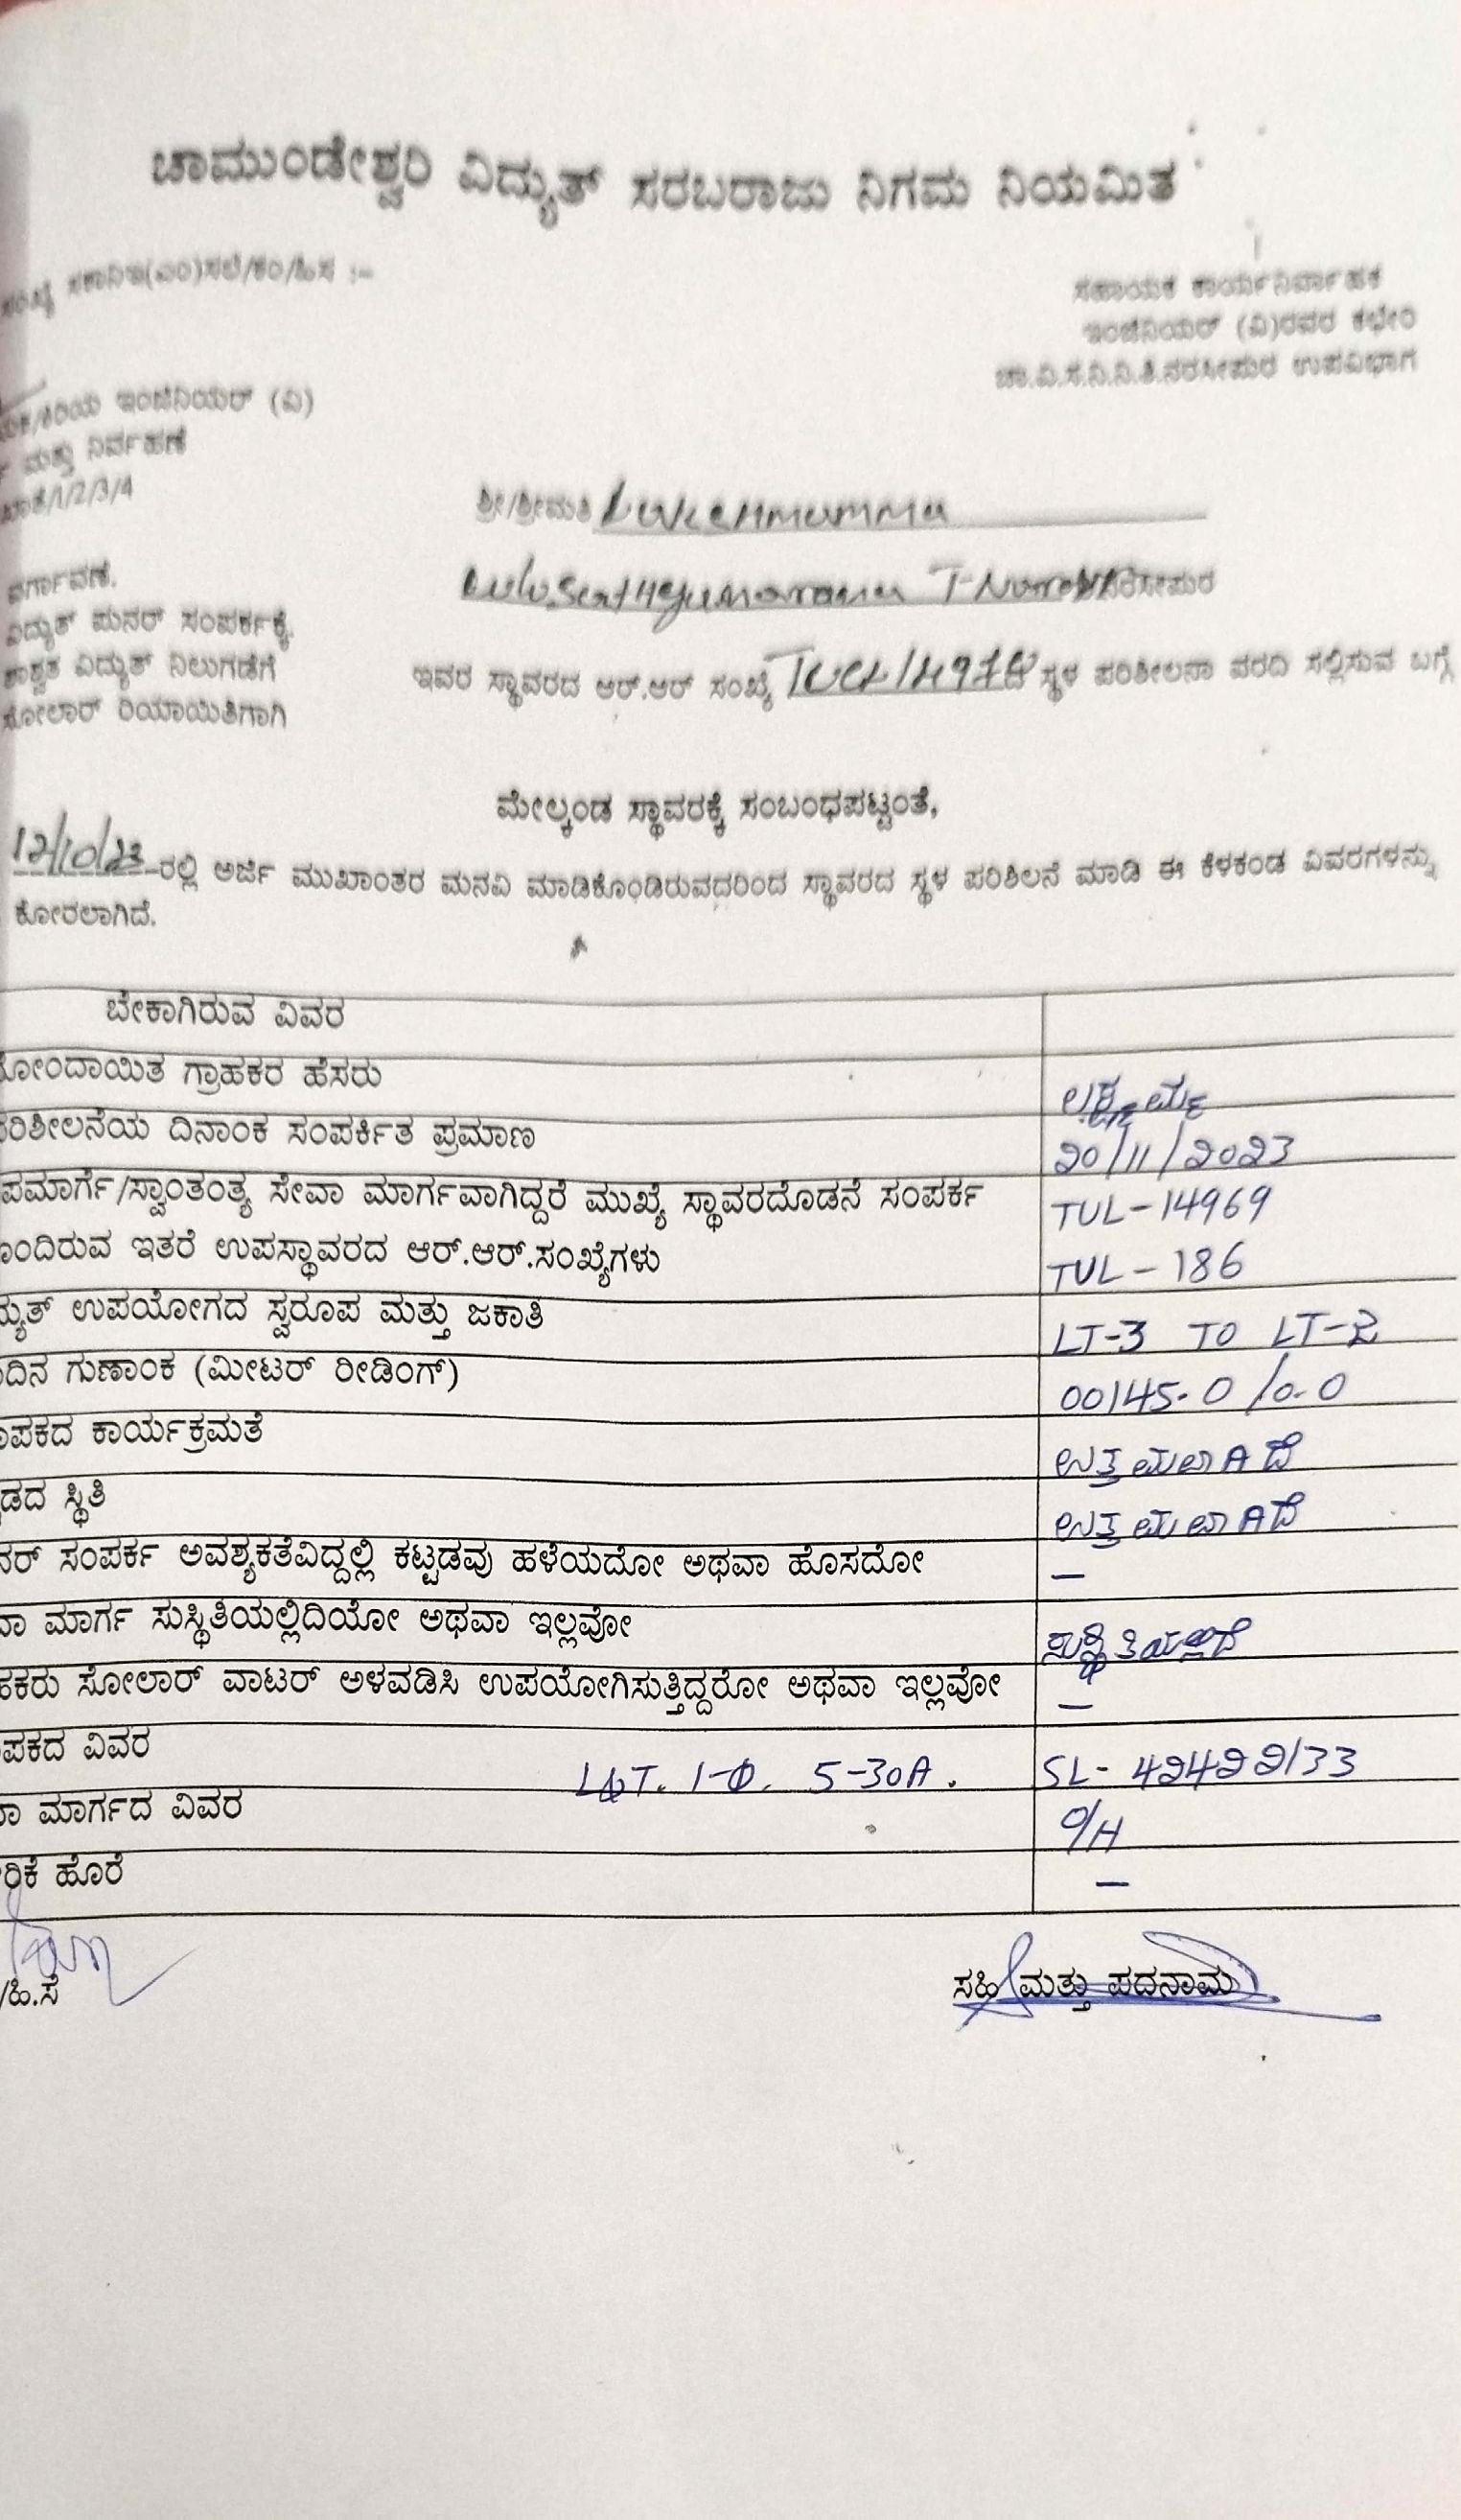 ಚಾಮುಂಡೇಶ್ವರಿ ವಿದ್ಯುತ್ ಸರಬರಾಜು ನಿಗಮ ನಿಯಮಿತ
ಸಹಾಯಕ ಕಾರ್ಯನಿರ್ವಾಹಕ
ಇಂಜಿನಿಯರ್ (ವಿ)ರವರ ಕಛೇರಿ
ಚಾ.ವಿ.ಸ.ನಿ.ನಿ.ತಿ.ನರಸೀಪುರ ಉಪವಿಭಾಗ
ಕಿರಿಯ ಇಂಜಿನಿಯರ್ (ವಿ)
ಮತ್ತು ನಿರ್ವಹಣೆ
/1/2/3/4
ಶ್ರೀ/ಶ್ರೀಮತಿ
ವರ್ಗಾವಣೆ.
ವಿದ್ಯುತ್ ಪುನರ್ ಸಂಪರ್ಕಕ್ಕೆ
ಶಾಶ್ವತ ವಿದ್ಯುತ್ ನಿಲುಗಡೆಗೆ
ಸೋಲಾರ್ ರಿಯಾಯಿತಿಗಾಗಿ
ಇವರ ಸ್ಥಾವರದ ಆರ್.ಆರ್ ಸಂಖ್ಯೆ ಸ್ಥಳ ಪರಿಶೀಲನಾ ವರದಿ ಸಲ್ಲಿಸುವ ಬಗ್ಗೆ
ಮೇಲ್ಕಂಡ ಸ್ಥಾವರಕ್ಕೆ ಸಂಬಂಧಪಟ್ಟಂತೆ,
12/10/23 ರಲ್ಲಿ ಅರ್ಜಿ ಮುಖಾಂತರ ಮನವಿ ಮಾಡಿಕೊಂಡಿರುವುದರಿಂದ ಸ್ಥಾವರದ ಸ್ಥಳ ಪರಿಶಿಲನೆ ಮಾಡಿ ಈ ಕೆಳಕಂಡ ವಿವರಗಳನ್ನು
ಕೋರಲಾಗಿದೆ.
ಬೇಕಾಗಿರುವ ವಿವರ
ನೋಂದಾಯಿತ ಗ್ರಾಹಕರ ಹೆಸರು ಲಕ್ಷ್ಮಮ್ಮ
ಪರಿಶೀಲನೆಯ ದಿನಾಂಕ ಸಂಪರ್ಕಿತ ಪ್ರಮಾಣ 20/11/2023
ಉಪಮಾರ್ಗ/ಸ್ವಾಂತಂತ್ಯ ಸೇವಾ ಮಾರ್ಗವಾಗಿದ್ದರೆ ಮುಖ್ಯೆ ಸ್ಥಾವರದೊಡನೆ ಸಂಪರ್ಕ TUL-14969
ಹೊಂದಿರುವ ಇತರೆ ಉಪಸ್ಥಾವರದ ಆರ್.ಆರ್.ಸಂಖ್ಯೆಗಳು TUL-186
ವಿದ್ಯುತ್ ಉಪಯೋಗದ ಸ್ವರೂಪ ಮತ್ತು ಜಕಾತಿ LT-3 TO LT-2
ದಿನ ಗುಣಾಂಕ (ಮೀಟರ್ ರೀಡಿಂಗ್) 00145-0/0-0
ಮಾಪಕದ ಕಾರ್ಯಕ್ರಮತೆ ಉತ್ತಮವಾಗಿದೆ
ಕಟ್ಟಡದ ಸ್ಥಿತಿ ಉತ್ತಮವಾಗಿದೆ
ಪುನರ್ ಸಂಪರ್ಕ ಅವಶ್ಯಕತೆವಿದ್ದಲ್ಲಿ ಕಟ್ಟಡವು ಹಳೆಯದೋ ಅಥವಾ ಹೊಸದೋ –
ಸೇವಾ ಮಾರ್ಗ ಸುಸ್ಥಿತಿಯಲ್ಲಿದಿಯೋ ಅಥವಾ ಇಲ್ಲವೋ ಸುಸ್ಥಿತಿಯಲ್ಲಿದೆ
ಗ್ರಾಹಕರು ಸೋಲಾರ್ ವಾಟರ್ ಅಳವಡಿಸಿ ಉಪಯೋಗಿಸುತ್ತಿದ್ದರೋ ಅಥವಾ ಇಲ್ಲವೋ –
ಮಾಪಕದ ವಿವರ L&T. 1-Φ. 5-30A. SL- 42422133
ಸೇವಾ ಮಾರ್ಗದ ವಿವರ O/H
ಹೊರೆ –
/ಹಿ.ಸ ಸಹಿ ಮತ್ತು ಪದನಾಮ